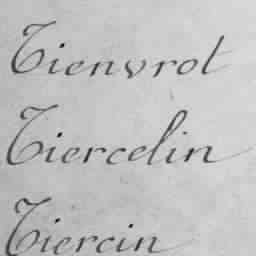 Tienvrot
Tiercelin
Tiercin